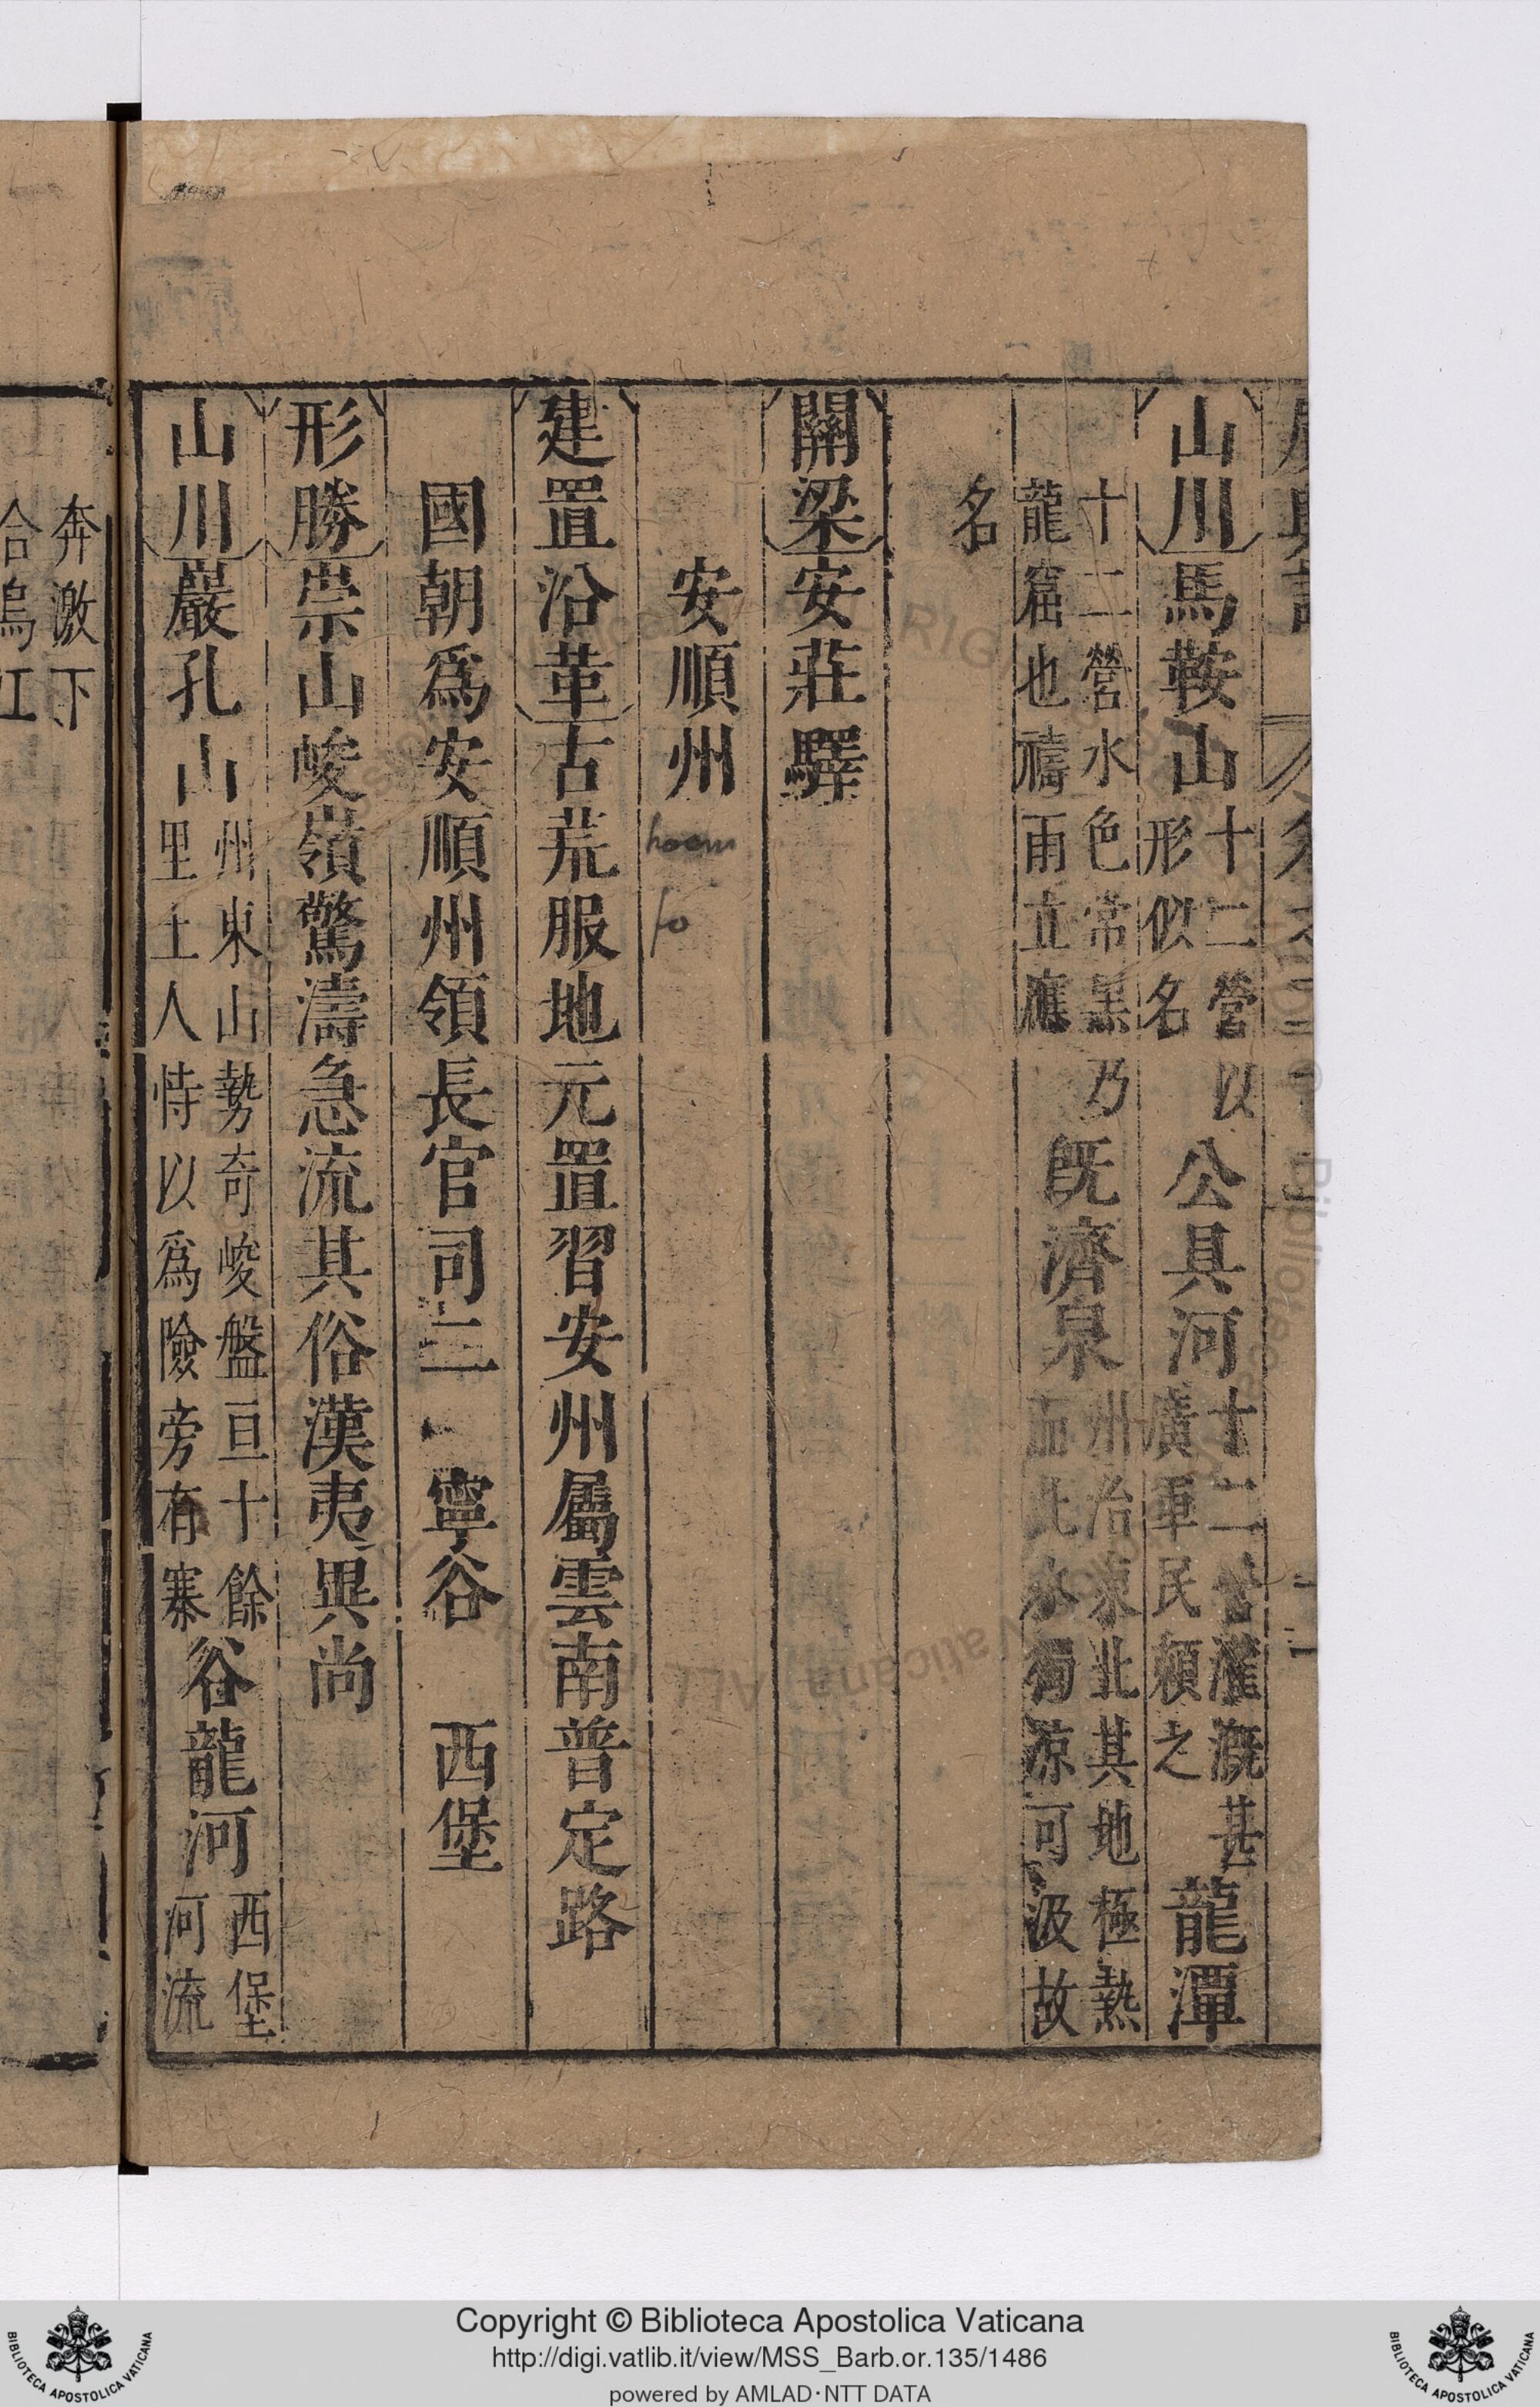 山川馬鞍山十二營以形似名公具河十二營灌溉甚廣軍民賴之龍潭
十二營水色常黑乃龍窟也禱雨立應旣濟泉州治東北其地極熱而此水獨涼可汲故
名
關梁安莊驛
安順州
hoem
fo
建置沿革古荒服地元置習安州屬雲南普定路
國朝爲安順州領長官司二 寧谷 西堡
形勝崇山峻嶺驚濤急流其俗漢夷異尚
山川巖孔山州東山勢奇峻盤亘十餘里土人恃以爲險旁有寨谷龍河西堡河流
奔激下
合烏江
Copyright © Biblioteca Apostolica Vaticana
http://digi.vatlib.it/view/MSS_Barb.or.135/1486
powered by AMLAD·NTT DATA
BIBLIOTECA APOSTOLICA VATICANA
BIBLIOTECA APOSTOLICA VATICANA